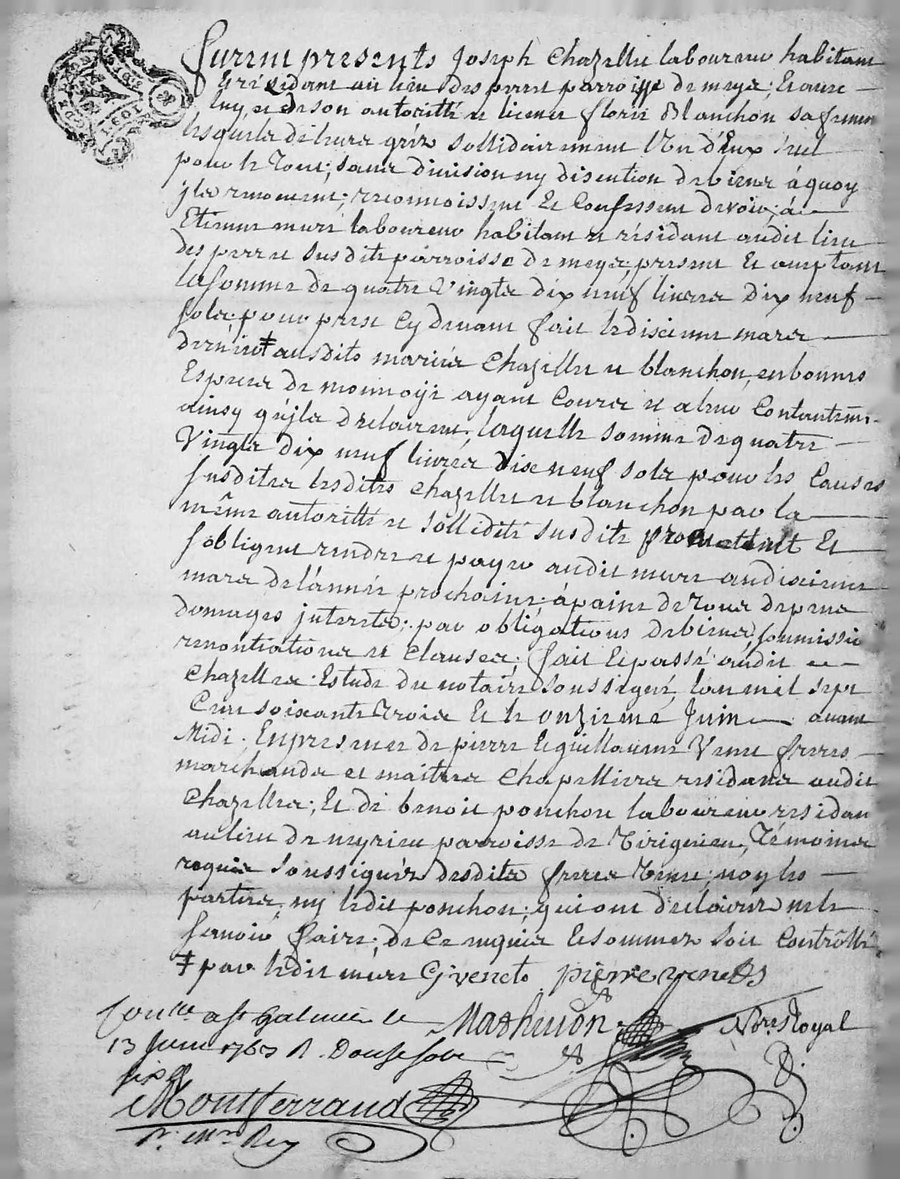 furent presents Joseph Chazelle laboureur habitant
& résidant au lieu des perre parroisse de meys; Et avec
luy, et de son autoritté et licence florie Blanchon sa femme
lesquels de leurs grés sollidairement l'Un d'Eux seul
pour le Tout; sans division ny discution de biens à quoy
jls renoncent; reconnoissent Et Confessent devoir, à
Etienne muré laboureur habitant et résidant audit lieu
des perre susdite parroisse de meys, present Et acceptant
la somme de quatre Vingts dix neuf livres dix neuf
sols, pour prest Cy devant fait le dixieme mars
dernier ‡ ausdits mariés Chazelle et blanchon, en bonnes
Especes de monnoye ayant Cours et a leur Contantem.t
ainsy qu'jls declarent, laquelle somme de quatre
Vingts dix neuf livres dix neuf sols pour les Causes
susdittes lesdits Chazelle et blanchon par la
même autoritté et sollidité susdite promettent Et
s'obligent rendre et payer audit muré au dixieme
mars de l'année prochaine; à paine de tous depens
domages interets; par obligations de biens, soumissions
renontiations et clauses; fait & passé audit
Chazelles Estude du notaire soussigné l'an mil sept
Cent soixante Trois Et le onzieme Juin avant
Midi. En presences de pierre & guillaume Venet freres
marchands et maitres Chapelliers residans audit
Chazelles; Et de benoit ponchon laboureur residant
au lieu de meyrieu parroisse de Virigneu, Témoins
requis soussignés lesdits freres Venet; non les
parties, ny ledit ponchon; qui ont declairés ne le
savoir faire; de Ce enquis & sommés soit Contrôllé
‡ par ledit muré G Venet pierre venet
Con.lle a St Galmier le Mathevon No.re Royal
13 Juin 1763 R. Douze sols
six d.
Montferrand